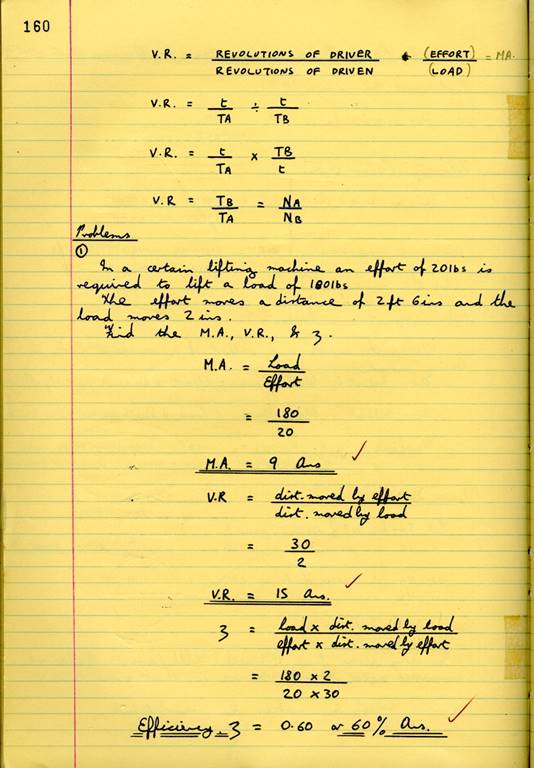 160
V.R. = REVOLUTIONS OF DRIVER / REVOLUTIONS OF DRIVEN (EFFORT) / (LOAD) = MA.
V.R. = t / TA ÷ t / TB
V.R. = t / TA x TB / t
V.R = TB / TA = NA / NB
Problems
①
In a certain lifting machine an effort of 20lbs is
required to lift a load of 180lbs
The effort moves a distance of 2ft 6ins and the
load moves 2 ins.
Find the M.A., V.R., & 3.
M.A. = Load / Effort
= 180 / 20
M.A. = 9 Ans
V.R = dist. moved by effort / dist. moved by load
= 30 / 2
V.R. = 15 Ans.
3 = load x dist. moved by load / effort x dist. moved by effort
= 180 x 2 / 20 x 30
Efficiency 3 = 0.60 or 60% Ans.